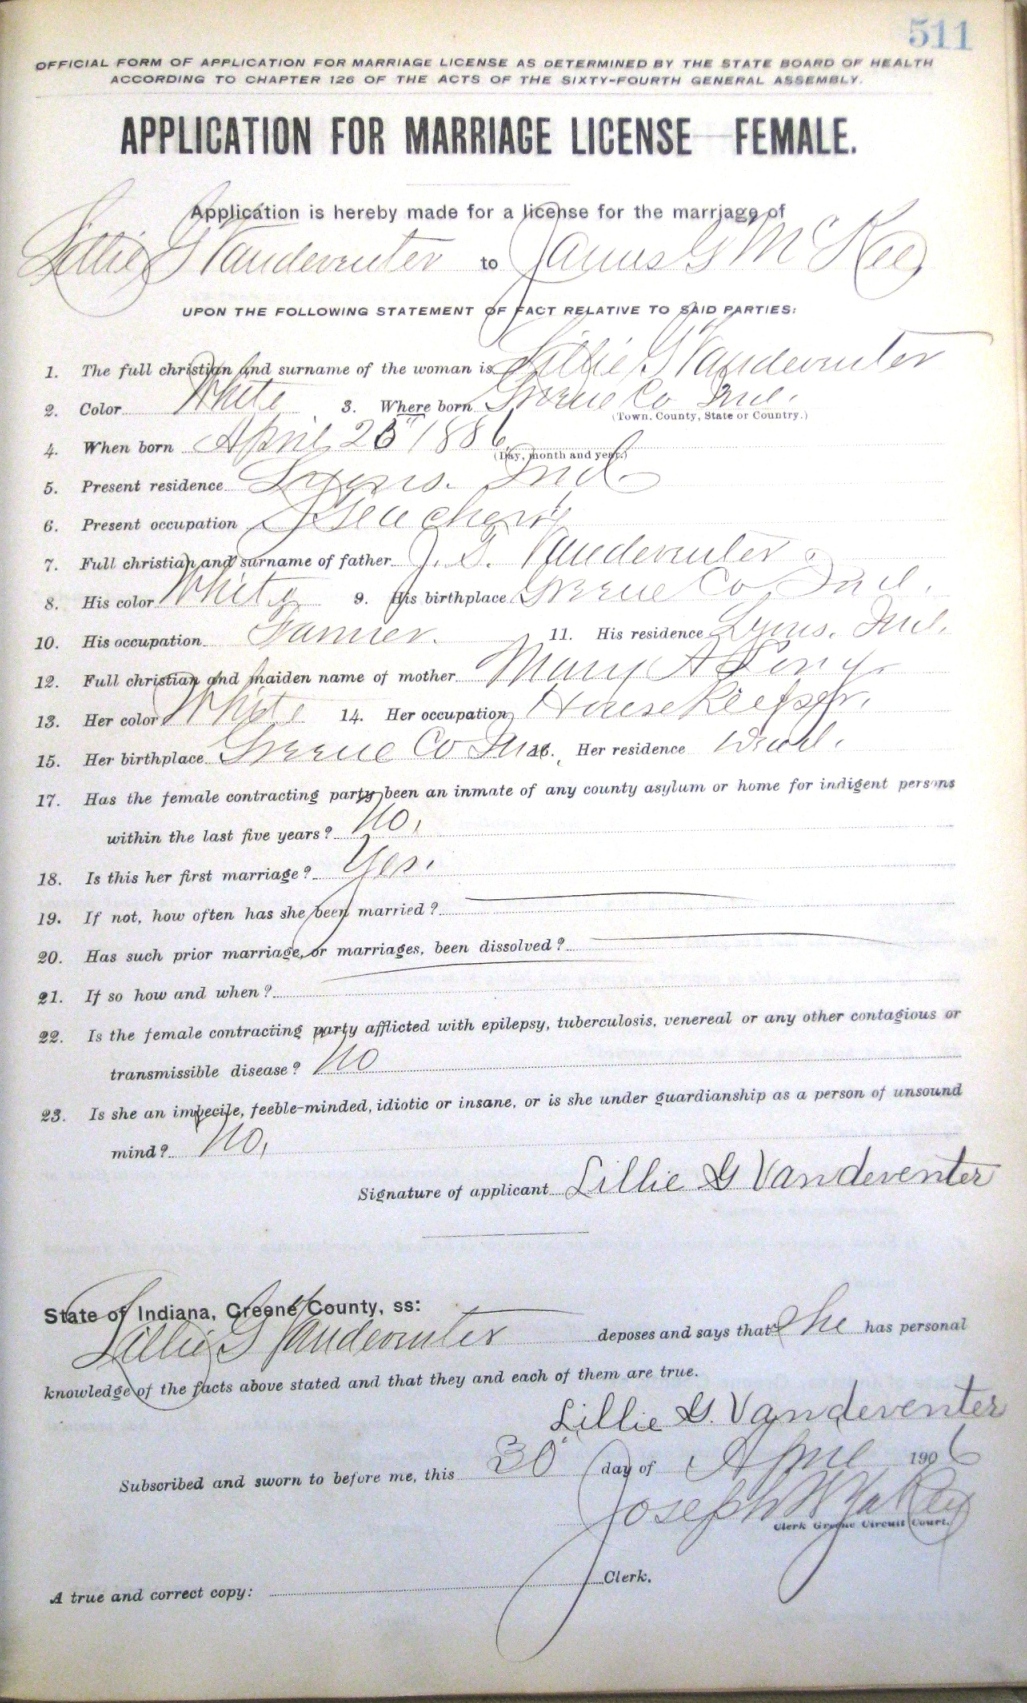 511
OFFICIAL FORM OF APPLICATION FOR MARRIAGE LICENSE AS DETERMINED BY THE STATE BOARD OF HEALTH
ACCORDING TO CHAPTER 126 OF THE ACTS OF THE SIXTY-FOURTH GENERAL ASSEMBLY.
APPLICATION FOR MARRIAGE LICENSE FEMALE.
Application is hereby made for a license for the marriage of
Lillie G Vandeventer to James G McKee
UPON THE FOLLOWING STATEMENT OF FACT RELATIVE TO SAID PARTIES:
1. The full christian and surname of the woman is Lillie G Vandeventer
2. Color White 3. Where born Greene Co Ind.
(Town, County, State or Country.)
4. When born April 1886
(Day, month and year.)
5. Present residence Lyons. Ind
6. Present occupation Teacher
7. Full christian and surname of father J. T. Vandeventer
8. His color White 9. His birthplace Greene Co Ind.
10. His occupation Farmer. 11. His residence Lyons. Ind.
12. Full christian and maiden name of mother Mary A
13. Her color White 14. Her occupation Housekeeper.
15. Her birthplace Greene Co Ind 16. Her residence
17. Has the female contracting party been an inmate of any county asylum or home for indigent persons
within the last five years? No.
18. Is this her first marriage? Yes.
19. If not, how often has she been married?
20. Has such prior marriage, or marriages, been dissolved?
21. If so how and when?
22. Is the female contracting party afflicted with epilepsy, tuberculosis, venereal or any other contagious or
transmissible disease? No
23. Is she an imbecile, feeble-minded, idiotic or insane, or is she under guardianship as a person of unsound
mind? No.
Signature of applicant Lillie G Vandeventer
State of Indiana, Greene County, ss:
Lillie G Vandeventer deposes and says that She has personal
knowledge of the facts above stated and that they and each of them are true.
Lillie G. Vandeventer
Subscribed and sworn to before me, this 30" day of April 1906
Joseph W Yakey
Clerk Greene Circuit Court.
A true and correct copy: Clerk.